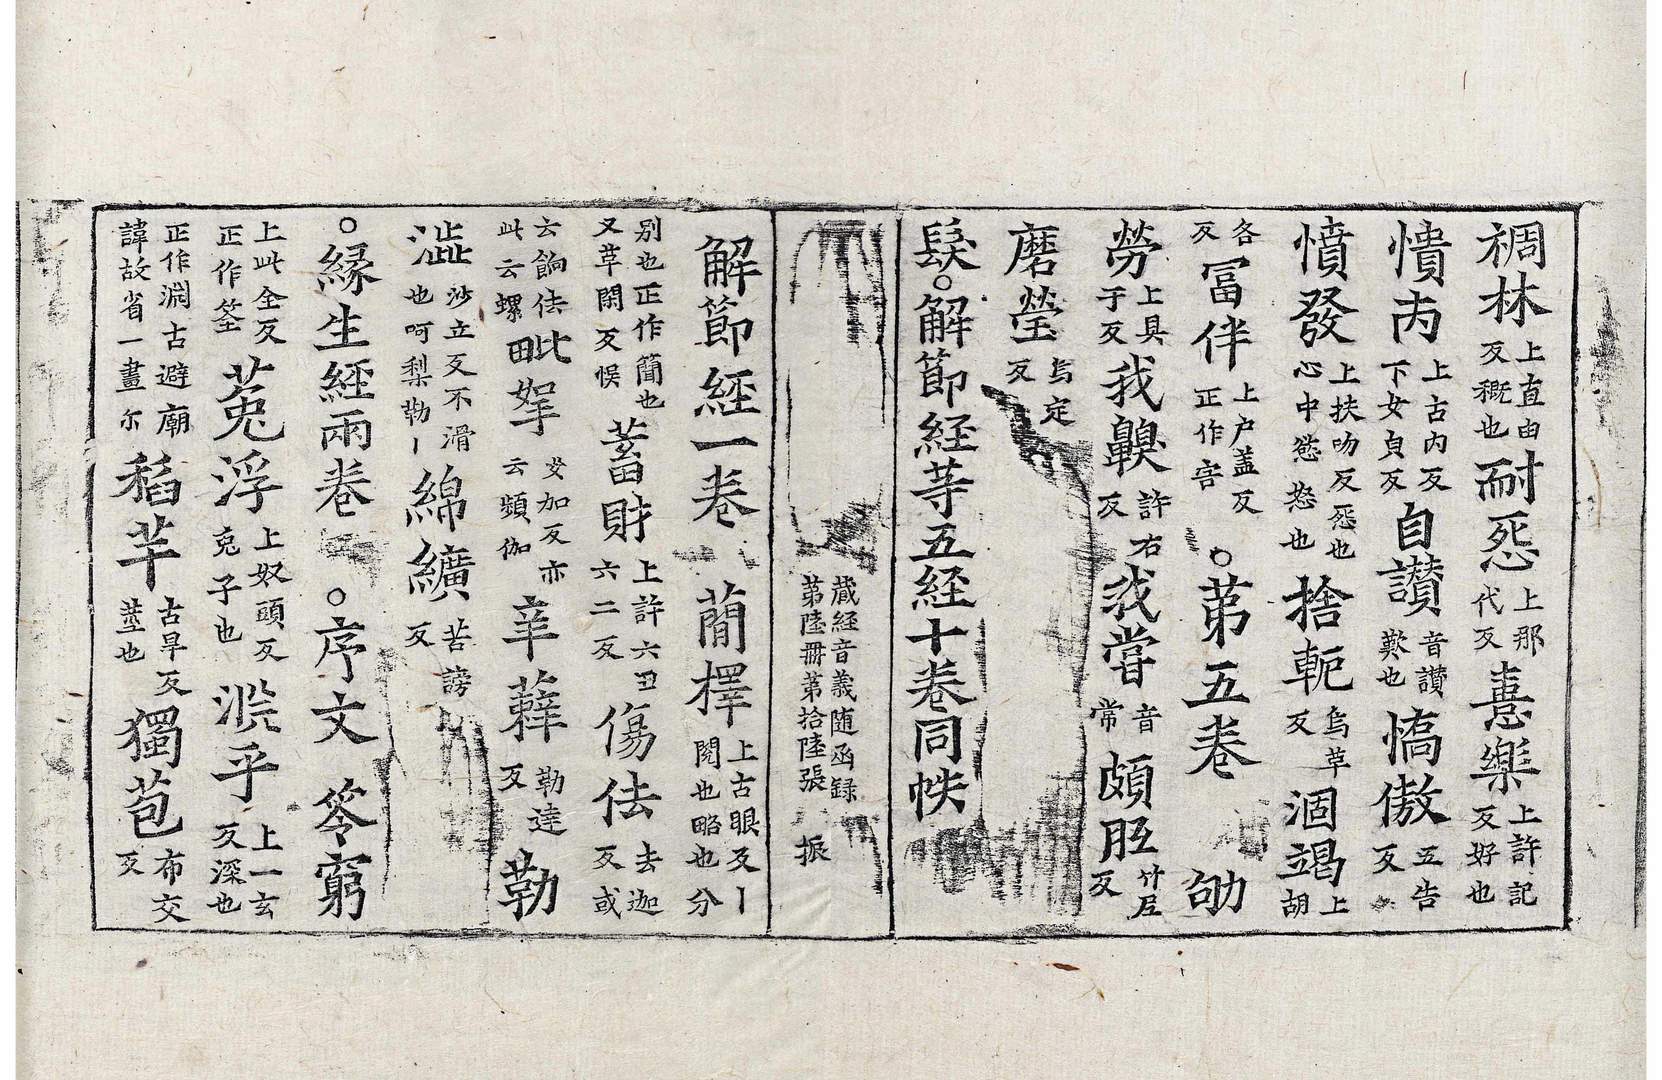 稠林上直由反穊也耐𢙣上那代反憙樂上許記反好也
憒丙上古内反下女貞反自讃音讃歎也憍傲五告反
憤發上扶吻反𢙣也心中慾怒也捨軛烏革反涸竭上胡
各反冨伴上户盖反正作害○苐五卷劬
勞上具于反我鼾許右反我嘗音常頗胝竹𡰱反
磨瑩烏定反
鬘○解節経等五経十卷同帙
藏経音義随函録第陸冊苐拾陸張 振
解節経一卷 蕳擇上古眼反丨閲也略也分
别也正作簡也又草閑反悮蓄財上許六丑六二反傷佉去迦反或
云餉佉此云螺毗拏女加反亦云頻伽 辛蘖勒達反勒
澁沙立反不滑也呵梨勒丨綿纊苦謗反
○緣生経兩卷 ○序文 筌窮
上此全反正作筌菟浮上奴頭反兎子也㴊乎上一玄反深也
正作淵古避廟諱故省一畫尔稻芉古旱反莖也獨苞布交反